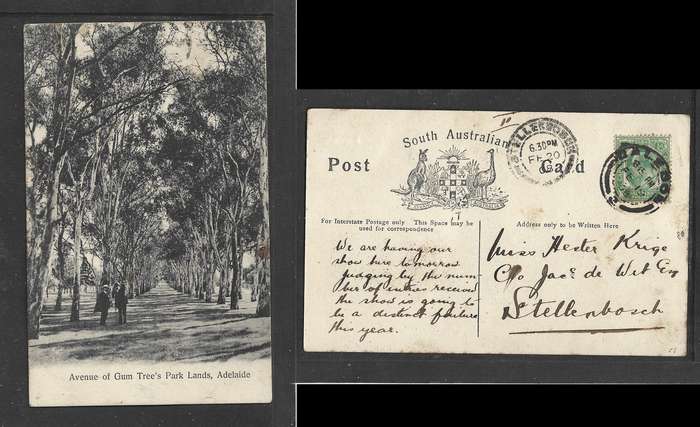 Avenue of Gum Tree's Park Lands, Adelaide
South Australian
Post Card
STELLENBOSCH
6.30PM
FE 20
For Interstate Postage only This Space may be
used for correspondence
Address only to be Written Here
We are having our
show here tomorrow
judging by the num-
ber of entries received
the show is going to
be a distinct failure
this year.
Miss Hester Krige
C/o Jac. de Wit Esq
Stellenbosch